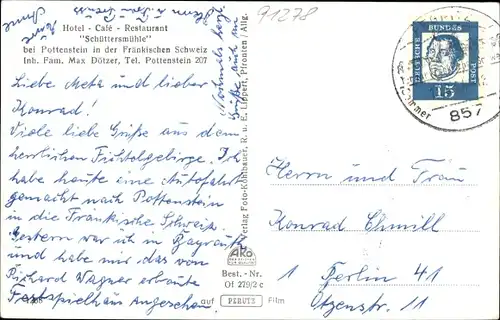 91278
Hotel - Café - Restaurant
"Schüttersmühle"
bei Pottenstein in der Fränkischen Schweiz
Inh. Fam. Max Dötzer, Tel. Pottenstein 207
Liebe Meta und lieber
Konrad!
Viele liebe Grüße aus dem
herrlichen Fichtelgebirge. Ich
habe heute eine Autofahrt
gemacht nach Pottenstein
in die Fränkische Schweiz.
Gestern war ich in Bayreuth
und habe mir das von
Richard Wagner erbaute
Festspielhaus angesehen.
Nochmals herzl.
Grüße auch an
Verlag Foto-Kohlbauer, R. u. E. Lippert, Pfronten / Allg.
AKO
Best.-Nr.
Of 279/2 c
auf PERUTZ Film
DEUTSCHE BUNDESPOST
15
857
Herrn und Frau
Konrad Chmill
1 Berlin 41
Otzenstr. 11